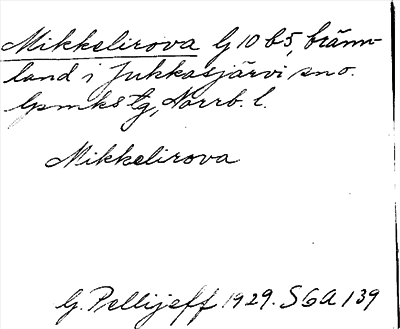 Mikkelirova G 10 b5, bränn-
land i Jukkasjärvi sn o.
lpmks tg, Norrb. l.
Mikkelirova
G. Pellijeff 1929. SGA 139